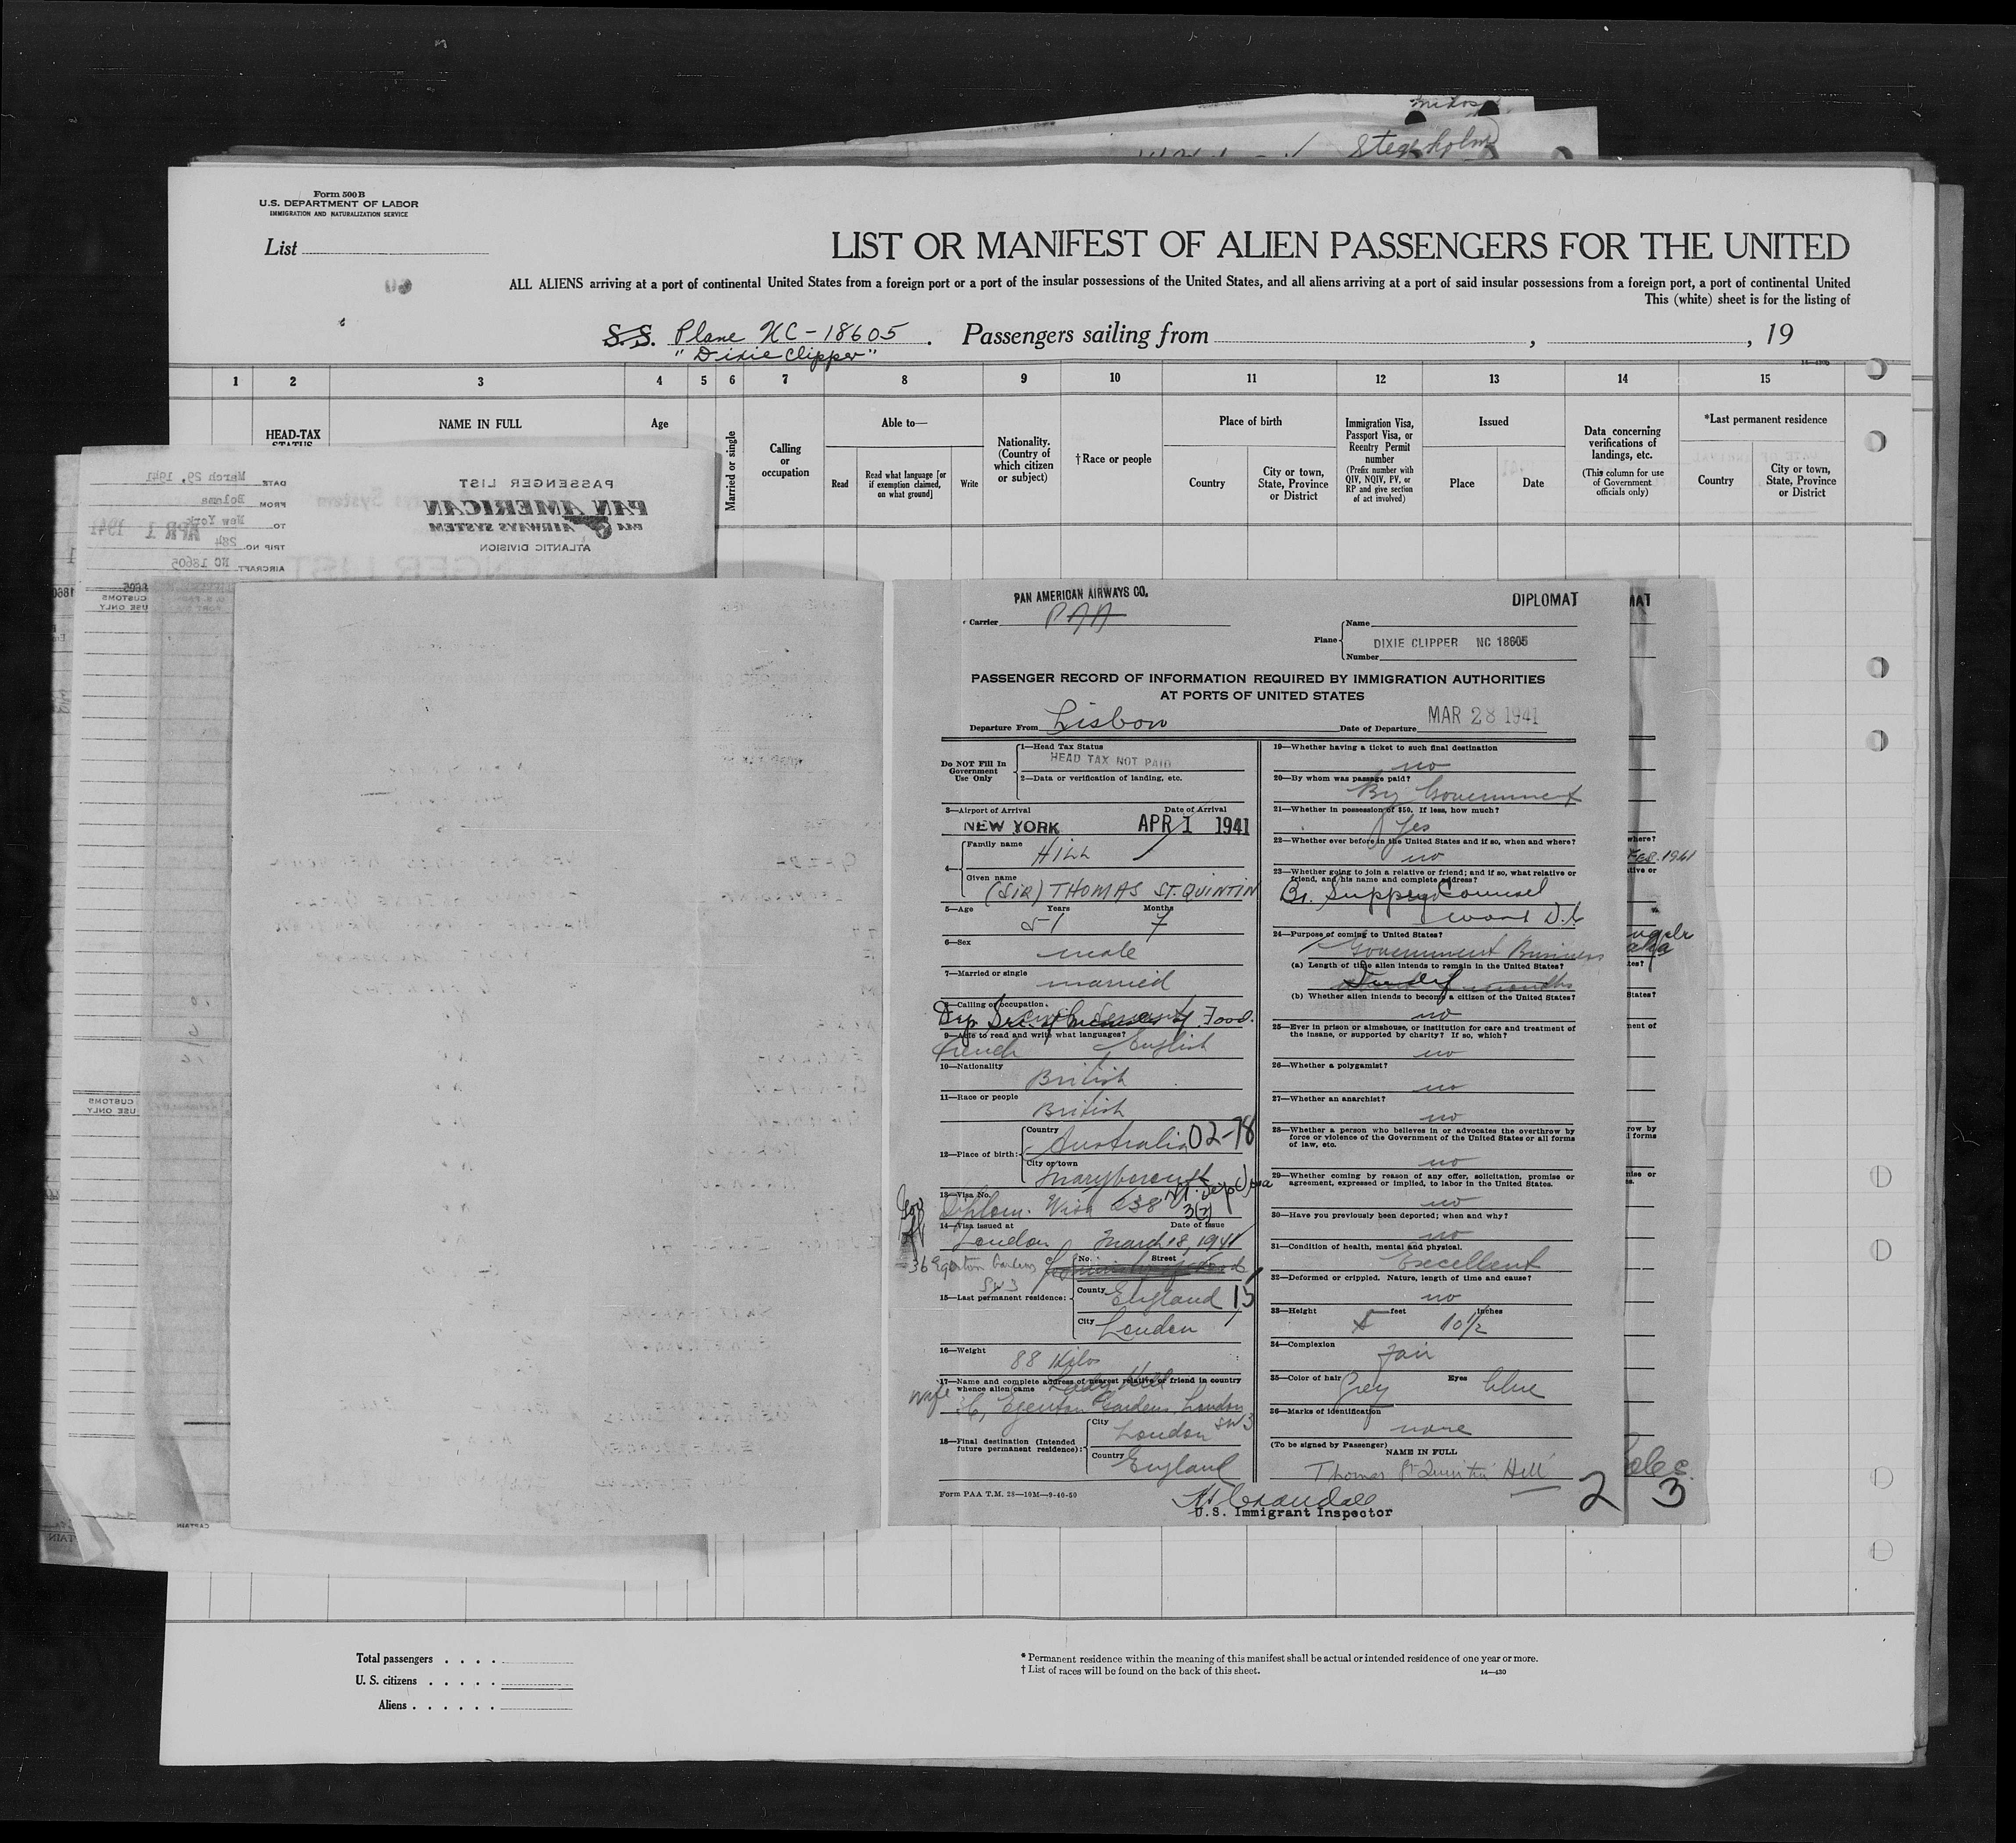 Stockholm
Form 500 B
U.S. DEPARTMENT OF LABOR
IMMIGRATION AND NATURALIZATION SERVICE
List
LIST OR MANIFEST OF ALIEN PASSENGERS FOR THE UNITED
ALL ALIENS arriving at a port of continental United States from a foreign port or a port of the insular possessions of the United States, and all aliens arriving at a port of said insular possessions from a foreign port, a port of continental United
This (white) sheet is for the listing of
S.S. Plane NC-18605 . Passengers sailing from , , 19
"Dixie Clipper"
1 2 3 4 5 6 7 8 9 10 11 12 13 14 15
HEAD-TAX
STATUS
NAME IN FULL
Age
Married or single
Calling
or
occupation
Able to—
Read
Read what language [or
if exemption claimed,
on what ground]
Write
Nationality.
(Country of
which citizen
or subject)
†Race or people
Place of birth
Country
City or town,
State, Province
or District
Immigration Visa,
Passport Visa, or
Reentry Permit
number
(Prefix number with
QIV, NQIV, PV, or
RP and give section
of act involved)
Issued
Place
Date
Data concerning
verifications of
landings, etc.
(This column for use
of Government
officials only)
*Last permanent residence
Country
City or town,
State, Province
or District
PASSENGER LIST
PAN AMERICAN
PAA AIRWAYS SYSTEM
ATLANTIC DIVISION
DATE March 29, 1941
FROM Bolama
TO New York
APR 1 1941
TRIP NO. 284
AIRCRAFT NC 18605
CUSTOMS
USE ONLY
CUSTOMS
USE ONLY
PAN AMERICAN AIRWAYS CO.
DIPLOMAT
Carrier PAA
Plane
Name
DIXIE CLIPPER NC 18605
Number
PASSENGER RECORD OF INFORMATION REQUIRED BY IMMIGRATION AUTHORITIES
AT PORTS OF UNITED STATES
Departure From Lisbon Date of Departure MAR 28 1941
Do NOT Fill In
Government
Use Only
1—Head Tax Status
HEAD TAX NOT PAID
2—Data or verification of landing, etc.
3—Airport of Arrival Date of Arrival
NEW YORK APR 1 1941
4—
Family name
HILL
Given name
(SIR) THOMAS ST. QUINTIN
5—Age Years Months
51 7
6—Sex
male
7—Married or single
married
8—Calling or occupation.
Food.
9—Able to read and write what languages?
French English
10—Nationality
British
11—Race or people
British
12—Place of birth:
Country
Australia 02-78
City or town
Maryborough
13—Visa No.
Diplom. Visa 238
3(2)
14—Visa issued at Date of Issue
London March 18, 1941
36 Egerton Gardens
SW3
No. Street
15—Last permanent residence:
County England 15
City London
16—Weight
88 Kilos
17—Name and complete address of nearest relative or friend in country
whence alien came Lady Hill
wife
36, Egerton Gardens, London
SW3
18—Final destination (Intended
future permanent residence):
City
London
Country
England
Form PAA T.M. 28—10M—9-40-50
19—Whether having a ticket to such final destination
no
20—By whom was passage paid?
By Government
21—Whether in possession of $50. If less, how much?
Yes
22—Whether ever before in the United States and if so, when and where?
no
23—Whether going to join a relative or friend; and if so, what relative or
friend, and his name and complete address?
Br. Supply Counsel
D.C
24—Purpose of coming to United States?
Government Business
(a) Length of time alien intends to remain in the United States?
months
(b) Whether alien intends to become a citizen of the United States?
no
25—Ever in prison or almshouse, or institution for care and treatment of
the insane, or supported by charity? If so, which?
no
26—Whether a polygamist?
no
27—Whether an anarchist?
no
28—Whether a person who believes in or advocates the overthrow by
force or violence of the Government of the United States or all forms
of law, etc.
no
29—Whether coming by reason of any offer, solicitation, promise or
agreement, expressed or implied, to labor in the United States.
no
30—Have you previously been deported; when and why?
no
31—Condition of health, mental and physical.
Excellent
32—Deformed or crippled. Nature, length of time and cause?
no
33—Height feet inches
5 10½
34—Complexion
fair
35—Color of hair Grey Eyes blue
36—Marks of identification
none
(To be signed by Passenger)
NAME IN FULL
Thomas St Quintin Hill
U.S. Immigrant Inspector
2
3
Total passengers . . . .
U. S. citizens . . . . .
Aliens . . . . . .
* Permanent residence within the meaning of this manifest shall be actual or intended residence of one year or more.
† List of races will be found on the back of this sheet.
14—430